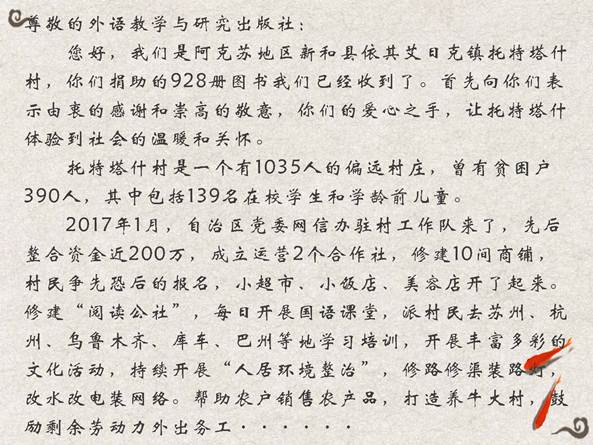 尊敬的外语教学与研究出版社：
您好，我们是阿克苏地区新和县依其艾日克镇托特塔什
村，你们捐助的928册图书我们已经收到了。首先向你们表
示由衷的感谢和崇高的敬意，你们的爱心之手，让托特塔什
体验到社会的温暖和关怀。
托特塔什村是一个有1035人的偏远村庄，曾有贫困户
390人，其中包括139名在校学生和学龄前儿童。
2017年1月，自治区党委网信办驻村工作队来了，先后
整合资金近200万，成立运营2个合作社，修建10间商铺，
村民争先恐后的报名，小超市、小饭店、美容店开了起来。
修建“阅读公社”，每日开展国语课堂，派村民去苏州、杭
州、乌鲁木齐、库车、巴州等地学习培训，开展丰富多彩的
文化活动，持续开展“人居环境整治”，修路修渠装路灯，
改水改电装网络。帮助农户销售农产品，打造养牛大村，鼓
励剩余劳动力外出务工······